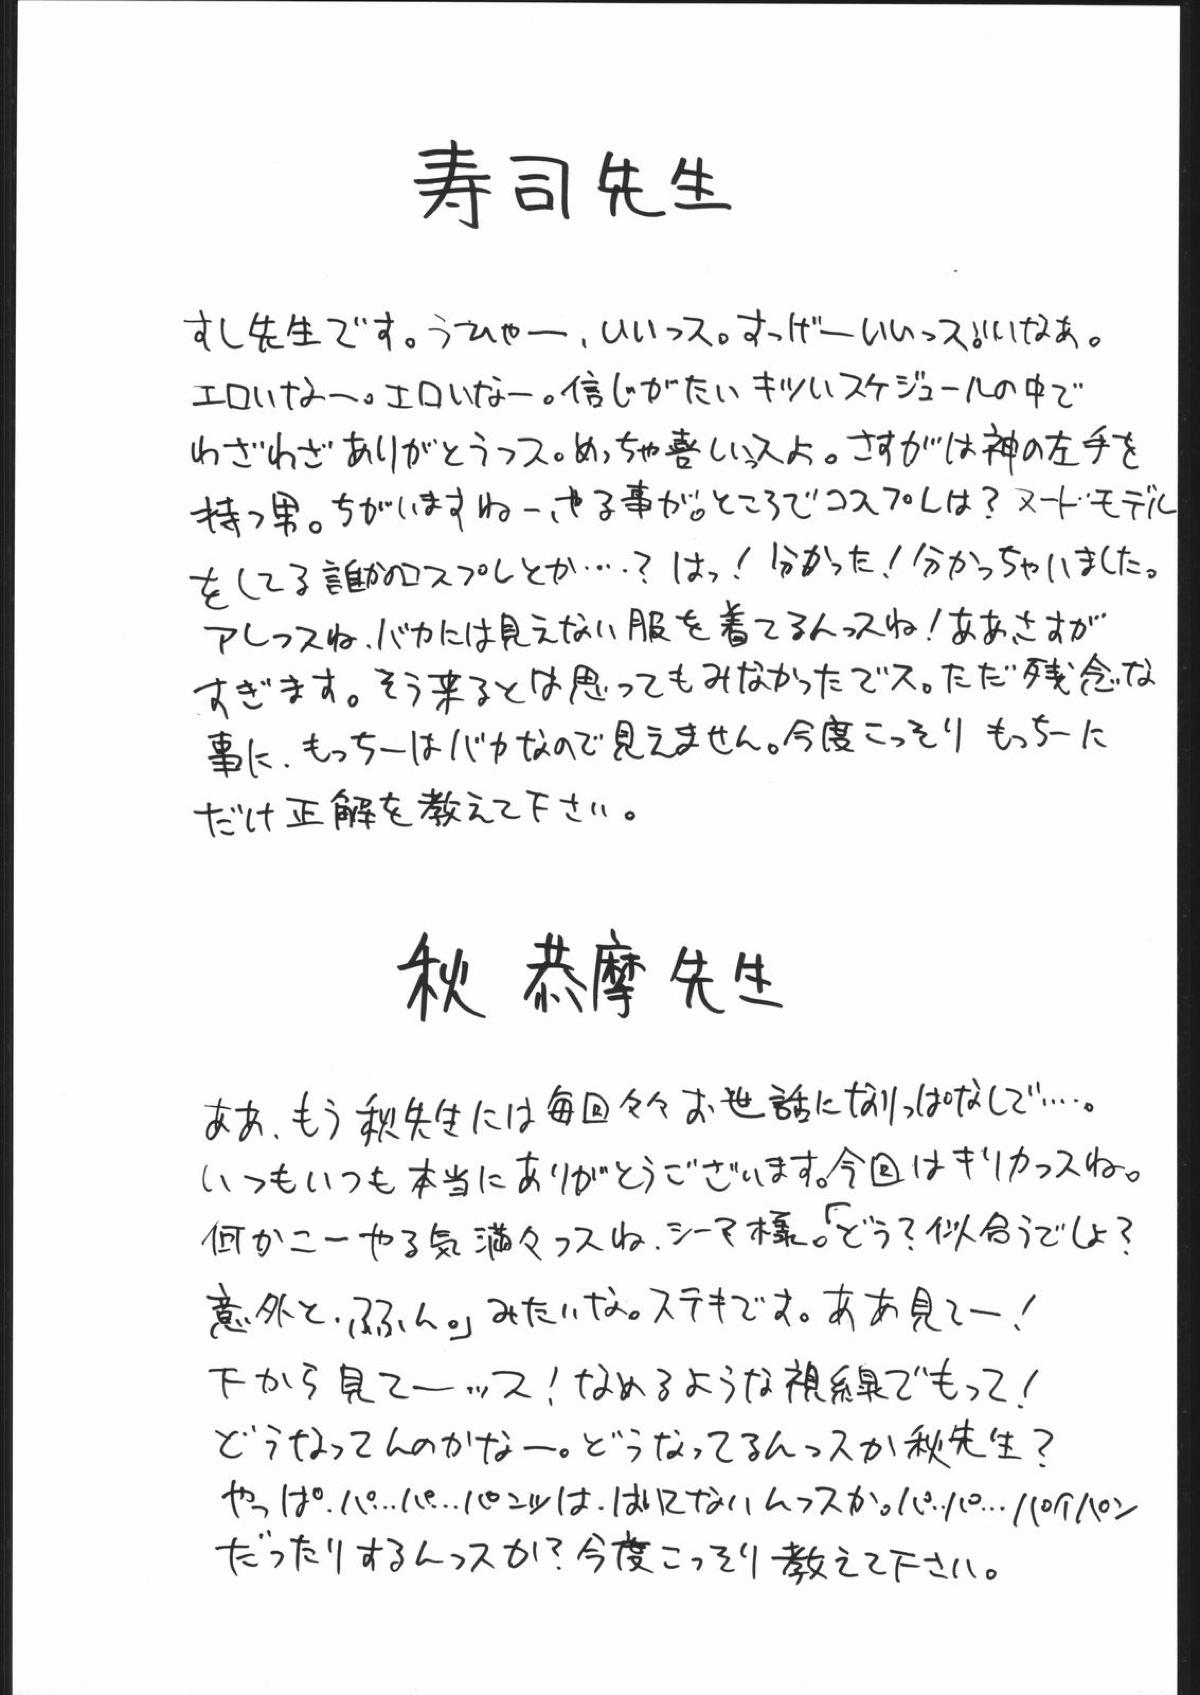 寿司先生
すし先生です。うひゃー、いいっス。すっげーいいっス。いいなぁ。
エロいなー。エロいなー。信じがたいキツいスケジュールの中で
わざわざありがとうっス。めっちゃ喜しいっスよ。さすがは神の左手を
持つ男。ちがいますねー、やる事が。ところでコスプレは?ヌードモデル
をしてる誰かのコスプレとか….?はっ!分かった!分かっちゃいました。
アレっスね、バカには見えない服を着てるんっスね!ああ、さすが
すぎます。そう来るとは思ってもみなかったでス。ただ残念な
事に、もっちーはバカなので見えません。今度こっそりもっちーに
だけ正解を教えて下さい。
秋 恭摩 先生
ああ、もう秋先生には毎回々々お世話になりっぱなしで….。
いつもいつも本当にありがとうございます。今回はキリカっスね。
何かこーやる気満々っスね、シーマ様。「どう?似合うでしょ?
意外と、ふふん。」みたいな。ステキです。ああ見てー!
下から見てーッス!なめるような視線でもって!
どうなってんのかなー。どうなってるんっスか秋先生?
やっぱ、パ…パ…パンツは、はいてないんっスか。パ…パ…パイパン
だったりするんっスか?今度こっそり教えて下さい。